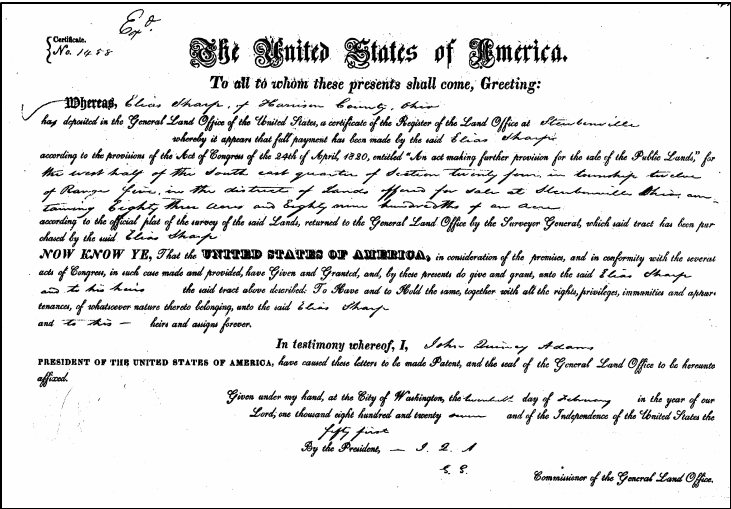 Exd.
Certificate.
No. 1458
The United States of America.
To all to whom these presents shall come, Greeting:
Whereas, Elias Sharp, of Harrison County, Ohio
has deposited in the General Land Office of the United States, a certificate of the Register of the Land Office at Steubenville
whereby it appears that full payment has been made by the said Elias Sharp
according to the provisions of the Act of Congress of the 24th of April, 1820, entitled "An act making further provision for the sale of the Public Lands," for
the west half of the South east quarter of Section twenty four, in township twelve
of Range five, in the district of Lands offered for sale at Steubenville Ohio, con-
taining Eighty three Acres and Eighty nine hundredths of an Acre
according to the official plat of the survey of the said Lands, returned to the General Land Office by the Surveyor General, which said tract has been pur
chased by the said Elias Sharp
NOW KNOW YE, That the UNITED STATES OF AMERICA, in consideration of the premises, and in conformity with the several
acts of Congress, in such case made and provided, have Given and Granted, and, by these presents do give and grant, unto the said Elias Sharp
and to his heirs the said tract above described: To Have and to Hold the same, together with all the rights, privileges, immunities and appur
tenances, of whatsoever nature thereto belonging, unto the said Elias Sharp
and to his — heirs and assigns forever.
In testimony whereof, I, John Quincy Adams
PRESIDENT OF THE UNITED STATES OF AMERICA, have caused these letters to be made Patent, and the seal of the General Land Office to be hereunto
affixed.
Given under my hand, at the City of Washington, the day of February in the year of our
Lord, one thousand eight hundred and twenty seven and of the Independence of the United States the
fifty first
By the President, — J. Q. A
G. G.
Commissioner of the General Land Office.